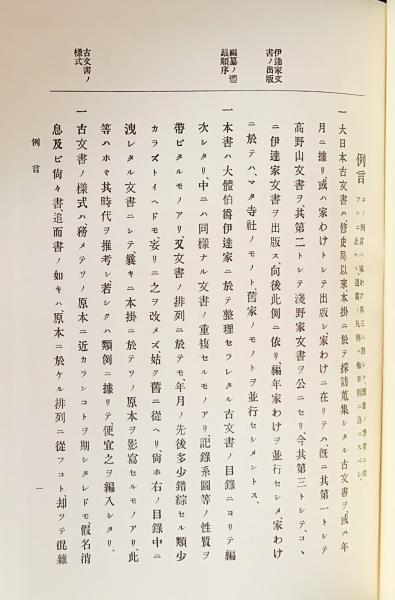 例言
一 大日本古文書ハ、修史局以來、本掛ニ於テ採訪蒐集シタル古文書ヲ、或ハ年
月ニ據リ、或ハ家わけトシテ出版シ、家わけニ在リテハ、既ニ其第一トシテ
高野山文書ヲ、其第二トシテ淺野家文書ヲ公ニセリ、今其第三トシテ、コヽ
ニ伊達家文書ヲ出版ス、向後此例ニ依リ、編年家わけヲ並行セシメ、家わけ
ニ於テハ、マタ寺社ノモノト、舊家ノモノトヲ並行セシメントス、
伊達家文
書ノ出版
一 本書ハ大體伯爵伊達家ニ於テ整理セラレタル古文書ノ目錄ニヨリテ編
次シタリ、中ニハ同樣ナル文書ノ重複セルモノアリ、記錄系圖等ノ性質ヲ
帶ビタルモノアリ、又文書ノ排列ニ於テモ、年月ノ先後多少錯綜セル類少
カラズトイヘドモ、妄リニ之ヲ改メズ、姑ク舊ニ從ヘリ、尙ホ右ノ目錄中ニ
洩レタル文書ニシテ、曩キニ本掛ニ於テソノ原本ヲ影寫セルモノアリ、此
等ハホヾ其時代ヲ推考シ、若シクハ類例ニ據リテ、便宜之ヲ編入シタリ、
編纂ノ體
裁順序
一 古文書ノ樣式ハ、務メテソノ原本ニ近カランコトヲ期シタレドモ、假名消
息及ビ尙々書追而書ノ如キハ、原本ニ於ケル排列ニ從フコト、却ツテ混雜
古文書ノ
樣式
例言
一